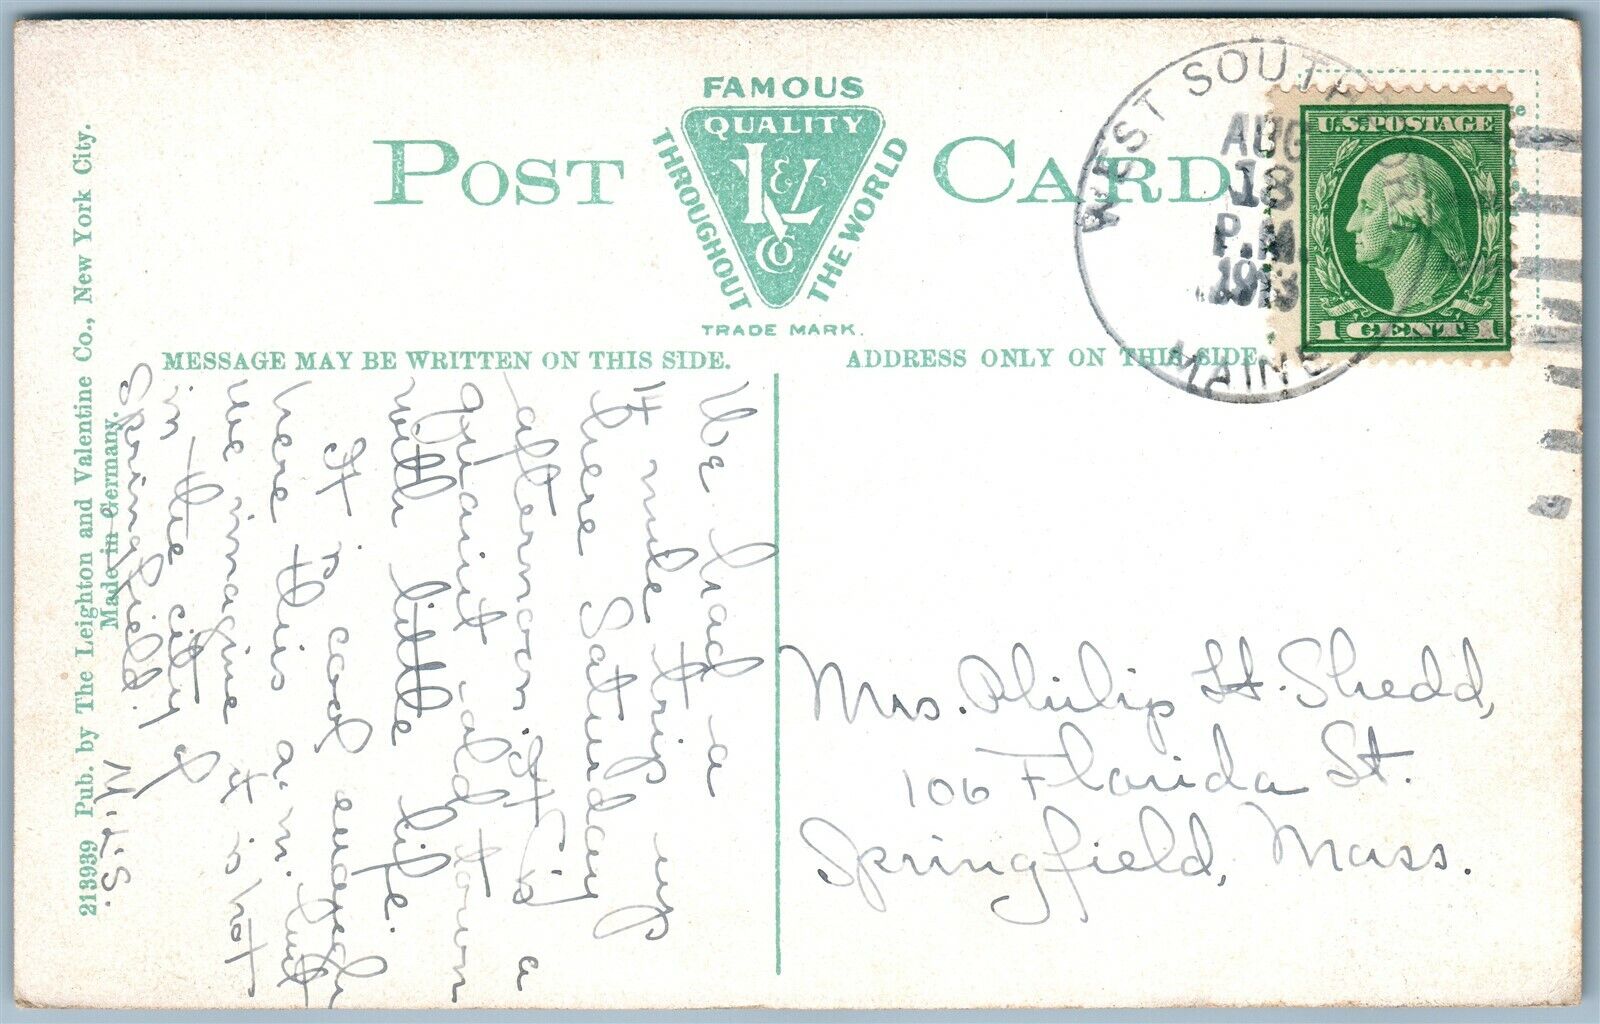 POST CARD
FAMOUS
QUALITY
L&V
Co
THROUGHOUT THE WORLD
TRADE MARK.
WEST SOUTHPORT
AUG
18
P.M.
1913
MAINE
U.S.POSTAGE
1 CENT 1
MESSAGE MAY BE WRITTEN ON THIS SIDE.
ADDRESS ONLY ON THIS SIDE
We had a
14 mile trip up
here Saturday
afternoon. It is a
quaint old town
with little life.
It is cool enough
here this a.m. but
we imagine it is hot
in the city of
Springfield.
M.K.S.
Mrs. Philip H. Shedd,
106 Florida St.
Springfield, Mass.
213939 Pub. by The Leighton and Valentine Co., New York City.
Made in Germany.